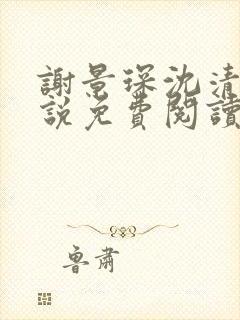 謝景琛沈清
說免費閱讀
魯肅